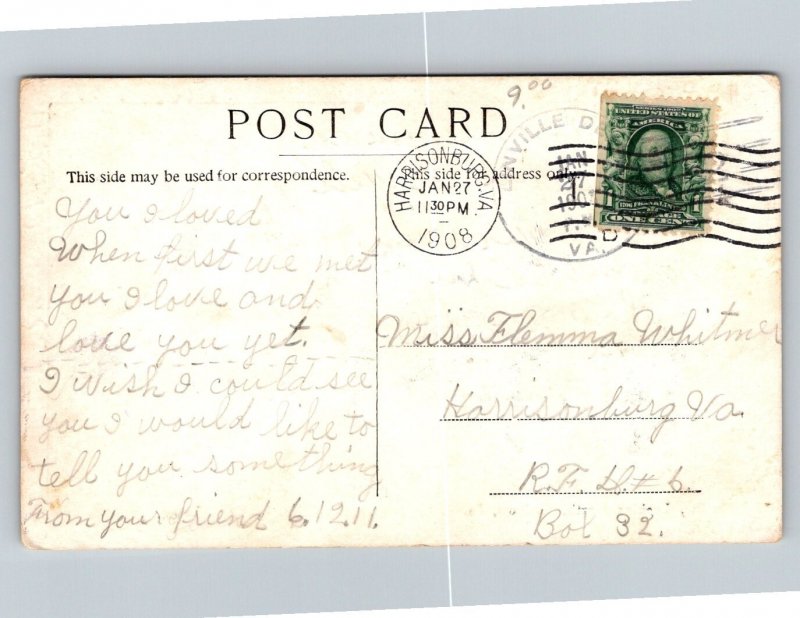 9.00
POST CARD
This side may be used for correspondence.
This side for address only.
HARRISONBURG, VA.
JAN 27
11 30 PM
1908
LINVILLE DEPOT
JAN
27
VA.
SERIES 1902
UNITED STATES OF
AMERICA
FRANKLIN
POSTAGE
ONE CENT
You I loved
When first we met
You I love and
love you yet.
I wish I could see
you I would like to
tell you something
From your friend 6.12.11.
Miss Flemma Whitmer
Harrisonburg Va.
R.F.D# 6.
Box 32.